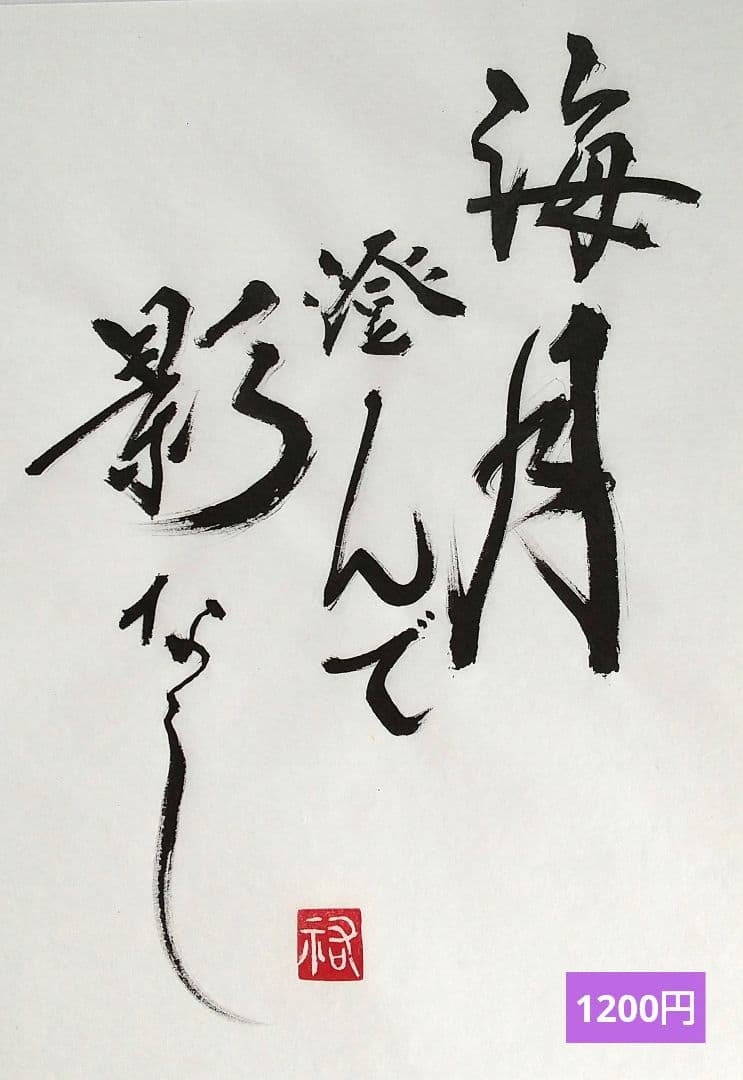 海月
澄んで
影なし
祐
1200円